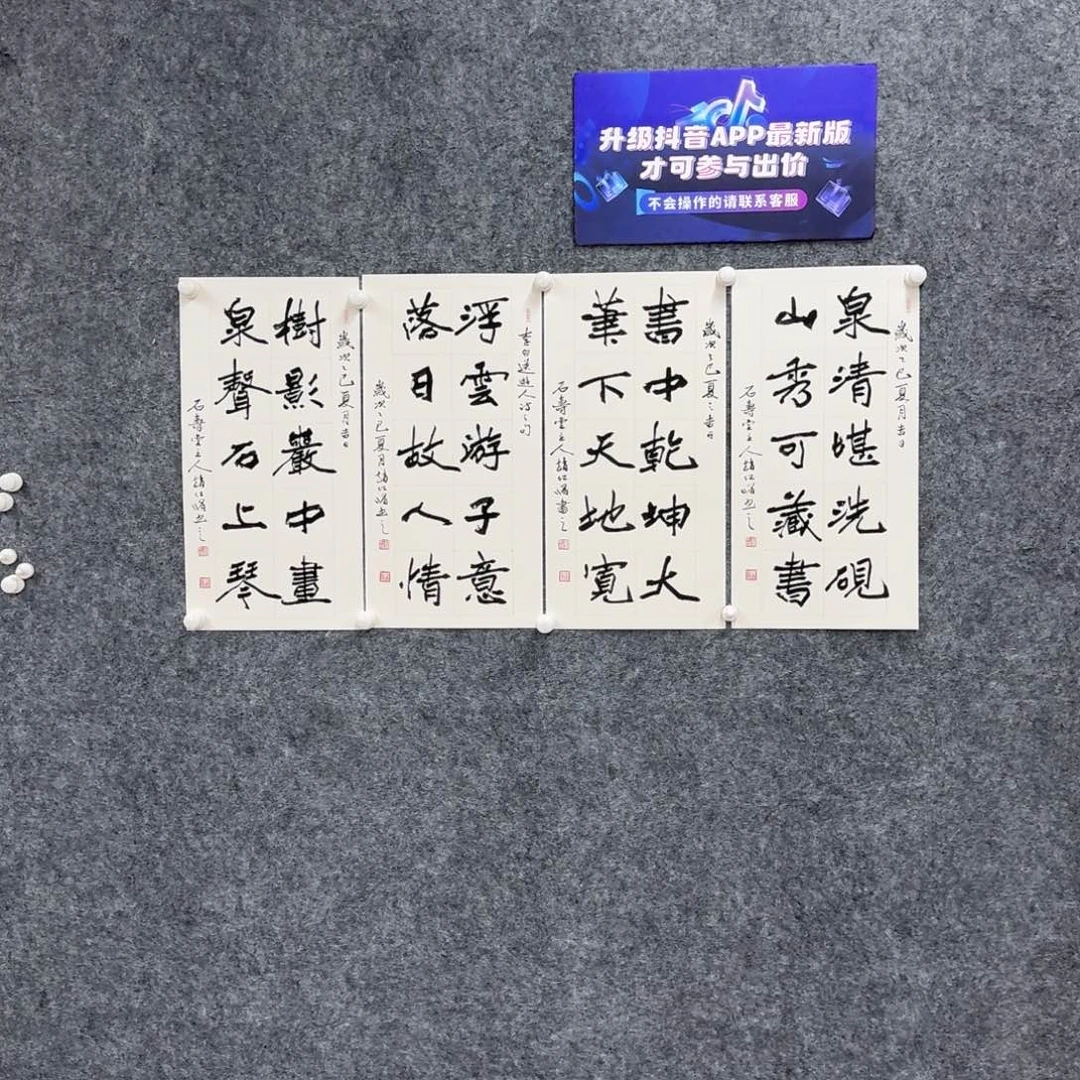 升级抖音APP最新版
才可参与出价
不会操作的请联系客服
歲次乙巳夏月吉日
泉清堪洗硯
山秀可藏書
石壽堂主人
歲次乙巳夏之吉日
書中乾坤大
筆下天地寬
石壽堂主人
李白送友人诗之句
浮雲游子意
落日故人情
歲次乙巳夏月
歲次乙巳夏月吉日
樹影巖中畫
泉聲石上琴
石壽堂主人